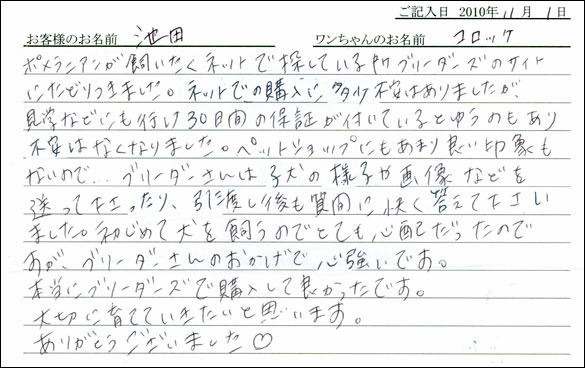 ご記入日 2010年 11月 1日
お客様のお名前 池田 ワンちゃんのお名前 コロッケ
ポメラニアンが飼いたくネットで探している時ブリーダーズのサイト
にたどりつきました。ネットでの購入に多少不安はありましたが、
見学などにも行け30日間の保証が付いているとゆうのもあり
不安はなくなりました。ペットショップにもあまり良い印象も
ないので… ブリーダーさんは子犬の様子や画像などを
送って下さったり、引き渡し後も質問に快く答えて下さい
ました。初じめて犬を飼うのでとても心配だったので
すが、ブリーダーさんのおかげで心強いです。
本当にブリーダーズで購入して良かったです。
大切に育てていきたいと思います。
ありがとうございました♡